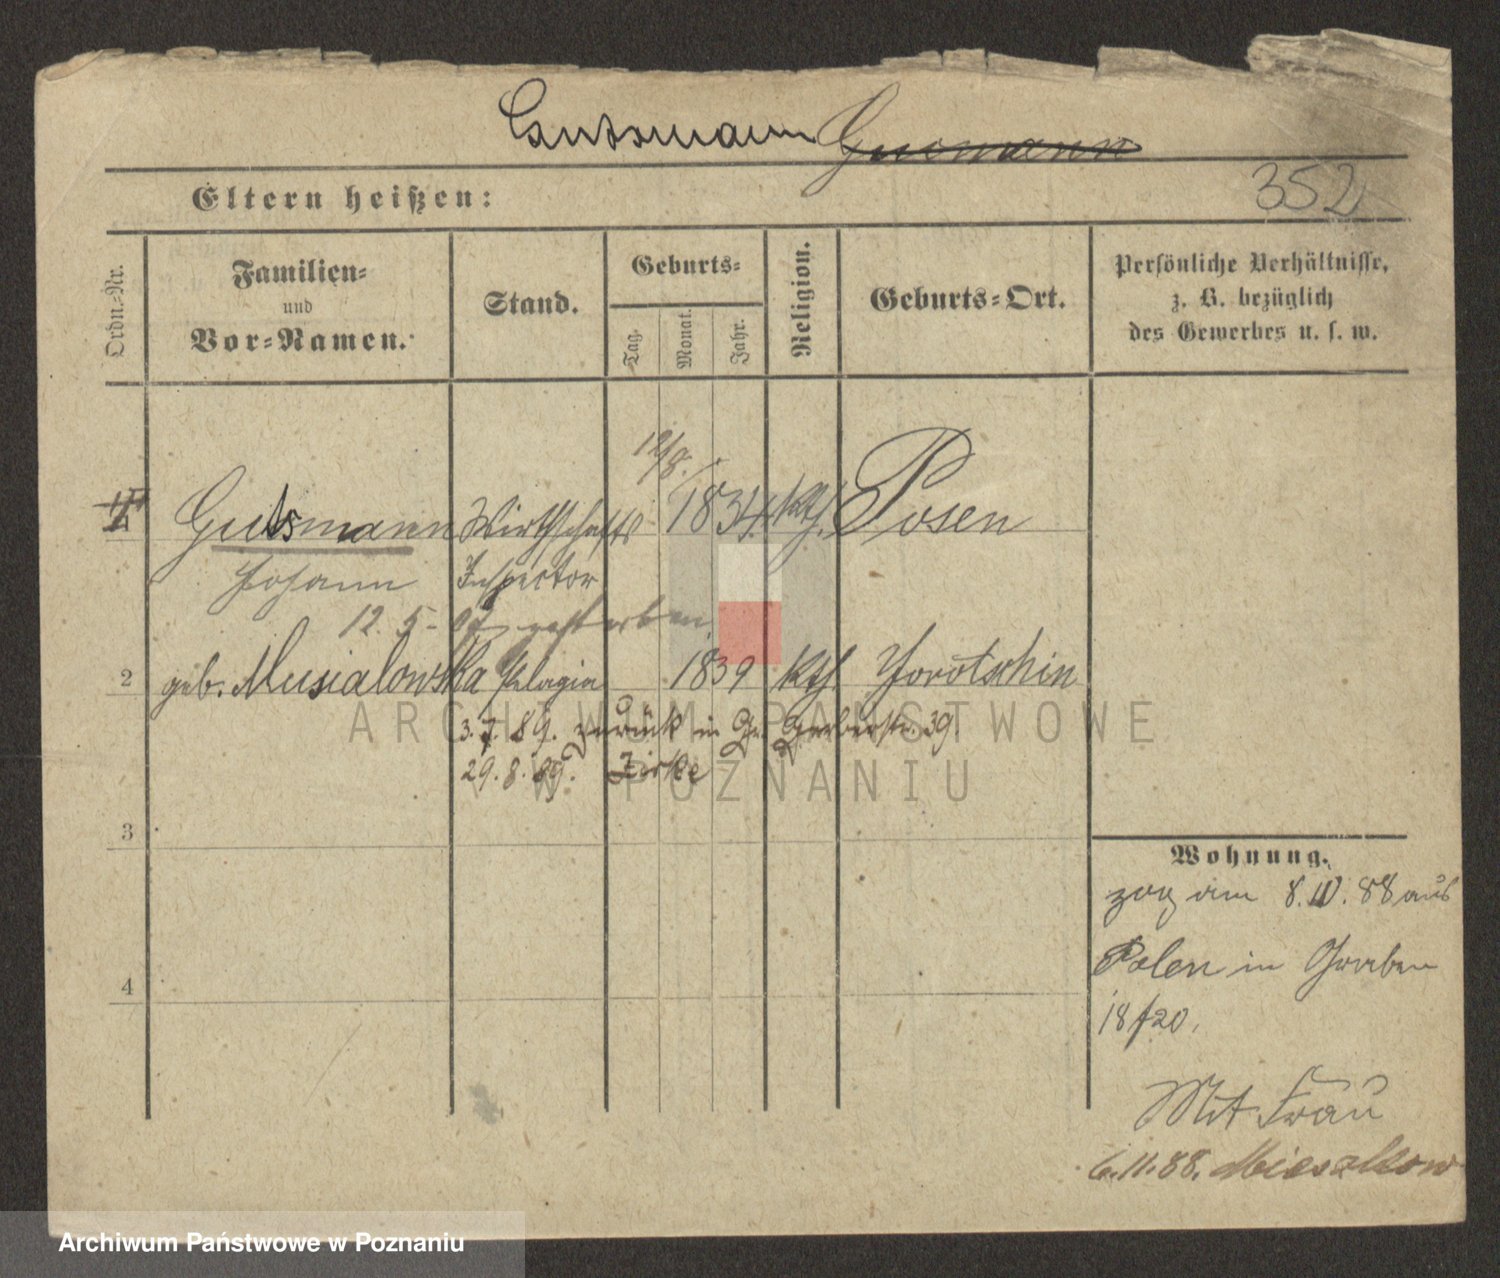 Gutsmann Gusmann
352
Eltern heißen:
Ordn.-Nr.
Familien-
und
Vor-Namen.
Stand.
Geburts-
Tag.
Monat.
Jahr.
Religion.
Geburts-Ort.
Persönliche Verhältnisse,
z. B. bezüglich
des Gewerbes u. s. w.
12/8.
1 Gutsmann Wirthschafts 1834. kth. Posen
Johann Inspector
12. 5. 07 gestorben
2 geb. Musialowska Pelagia 1839 kth. Jorotschin
3.7.89. zurück in Gr. Gerberstr. 39.
29.8.89. Zirke
3
4
Wohnung.
zog am 8.IV.88 aus
Polen in Graben
18/20.
Mit Frau
6.11.88. Mieszkow
ARCHIWUM PAŃSTWOWE
W POZNANIU
Archiwum Państwowe w Poznaniu